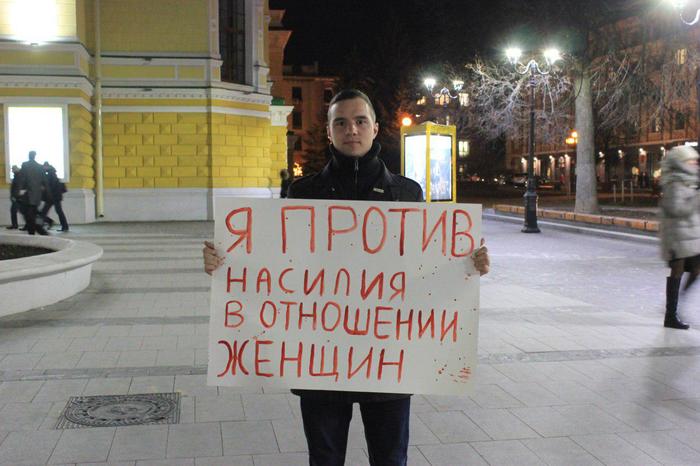 Я ПРОТИВ
НАСИЛИЯ
В ОТНОШЕНИИ
ЖЕНЩИН